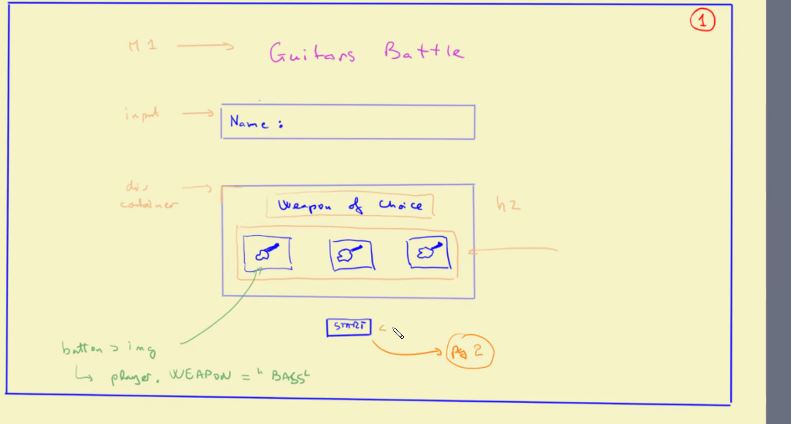 1
H1
Guitars Battle
input
Name :
div
container
Weapon of Choice
h2
START
Pg 2
button > img
player. WEAPON = "BASS"